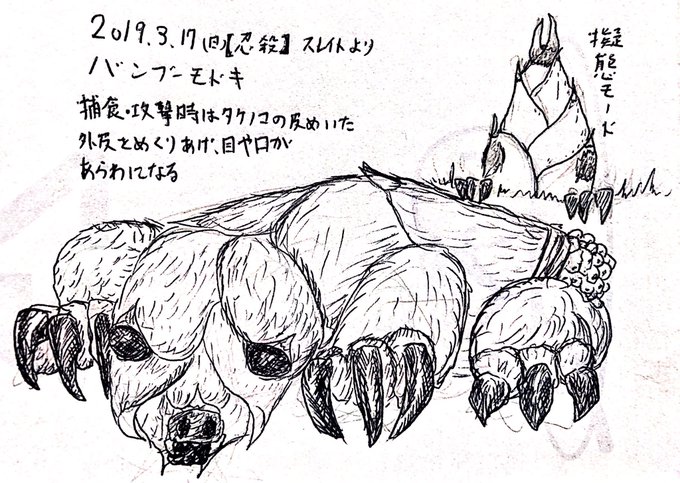 2019.3.17(日)【忍殺】スレイトより
バンブーモドキ
捕食・攻撃時はタケノコの皮めいた
外皮をめくりあげ、目や口が
あらわになる
擬態モード